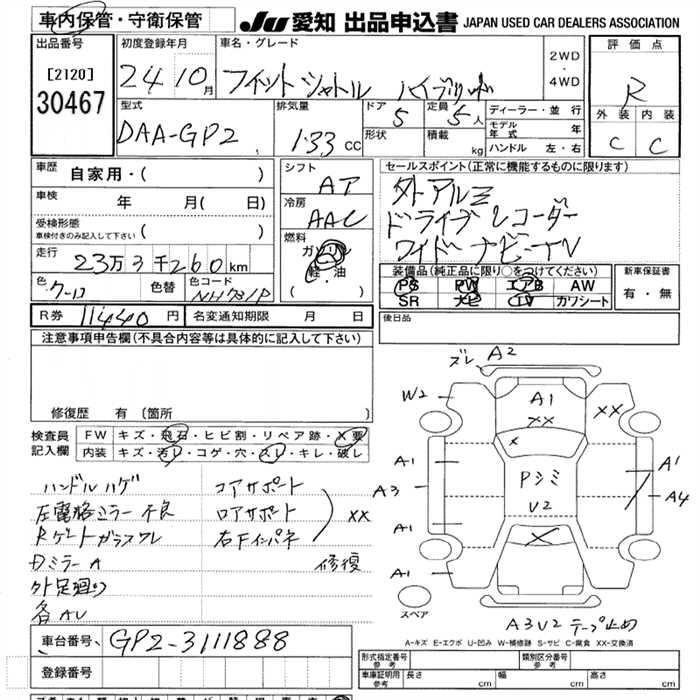 車内保管・守衛保管
JU 愛知 出品申込書 JAPAN USED CAR DEALERS ASSOCIATION
出品番号 初度登録年月 車名・グレード 評価点
[2120]
30467
24 10月 フィットシャトル ハイブリッド
2WD
・
4WD
R
型式 排気量 ドア 定員 ディーラー・並行 外装 内装
DAA-GP2 1.33 CC 5 5人
形状 積載 kg
モデル年式 年
ハンドル 左・右
C C
車歴 自家用・( )
シフト AT
セールスポイント(正常に機能するものに限ります)
車検 年 月( 日)
冷房 AAC
外アルミ
ドライブレコーダー
ワイドナビ-TV
受検形態
車検付きのみ記入して下さい ( )
燃料 ガソリン
・
軽油
( )
走行 23万3千260km
装備品(純正品に限り○をつけてください) 新車保証書
PS PW エアB AW
SR ナビ TV カワシート
有・無
色 色替 色コード NH731P
R券 11440円 名変通知期限 月 日
後日品
注意事項申告欄(不具合内容等は具体的に記入して下さい)
修復歴 有 [箇所 ]
検査員記入欄
FW キズ・飛石・ヒビ割・リペア跡・X要
内装 キズ・汚レ・コゲ・穴・スレ・キレ・破レ
ズレ A2
W2 A1 XX XX
X
A1 A1
A3 Pシミ A4
V2
A1
A1 X
スペア
A3V2 テープ止め
ハンドルハゲ コアサポート
左電格ミラー不良 ロアサポート XX
Rゲートガラスワレ 右Fインパネ
Dミラー A 修復
外足廻り
各AU
A-キズ E-エクボ U-凹み W-補修跡 S-サビ C-腐食 XX-交換済
車台番号 GP2-3111888
登録番号
形式指定番号 参考 類別区分番号 参考
車庫証明用 参考 長さ cm 幅 cm 高さ cm